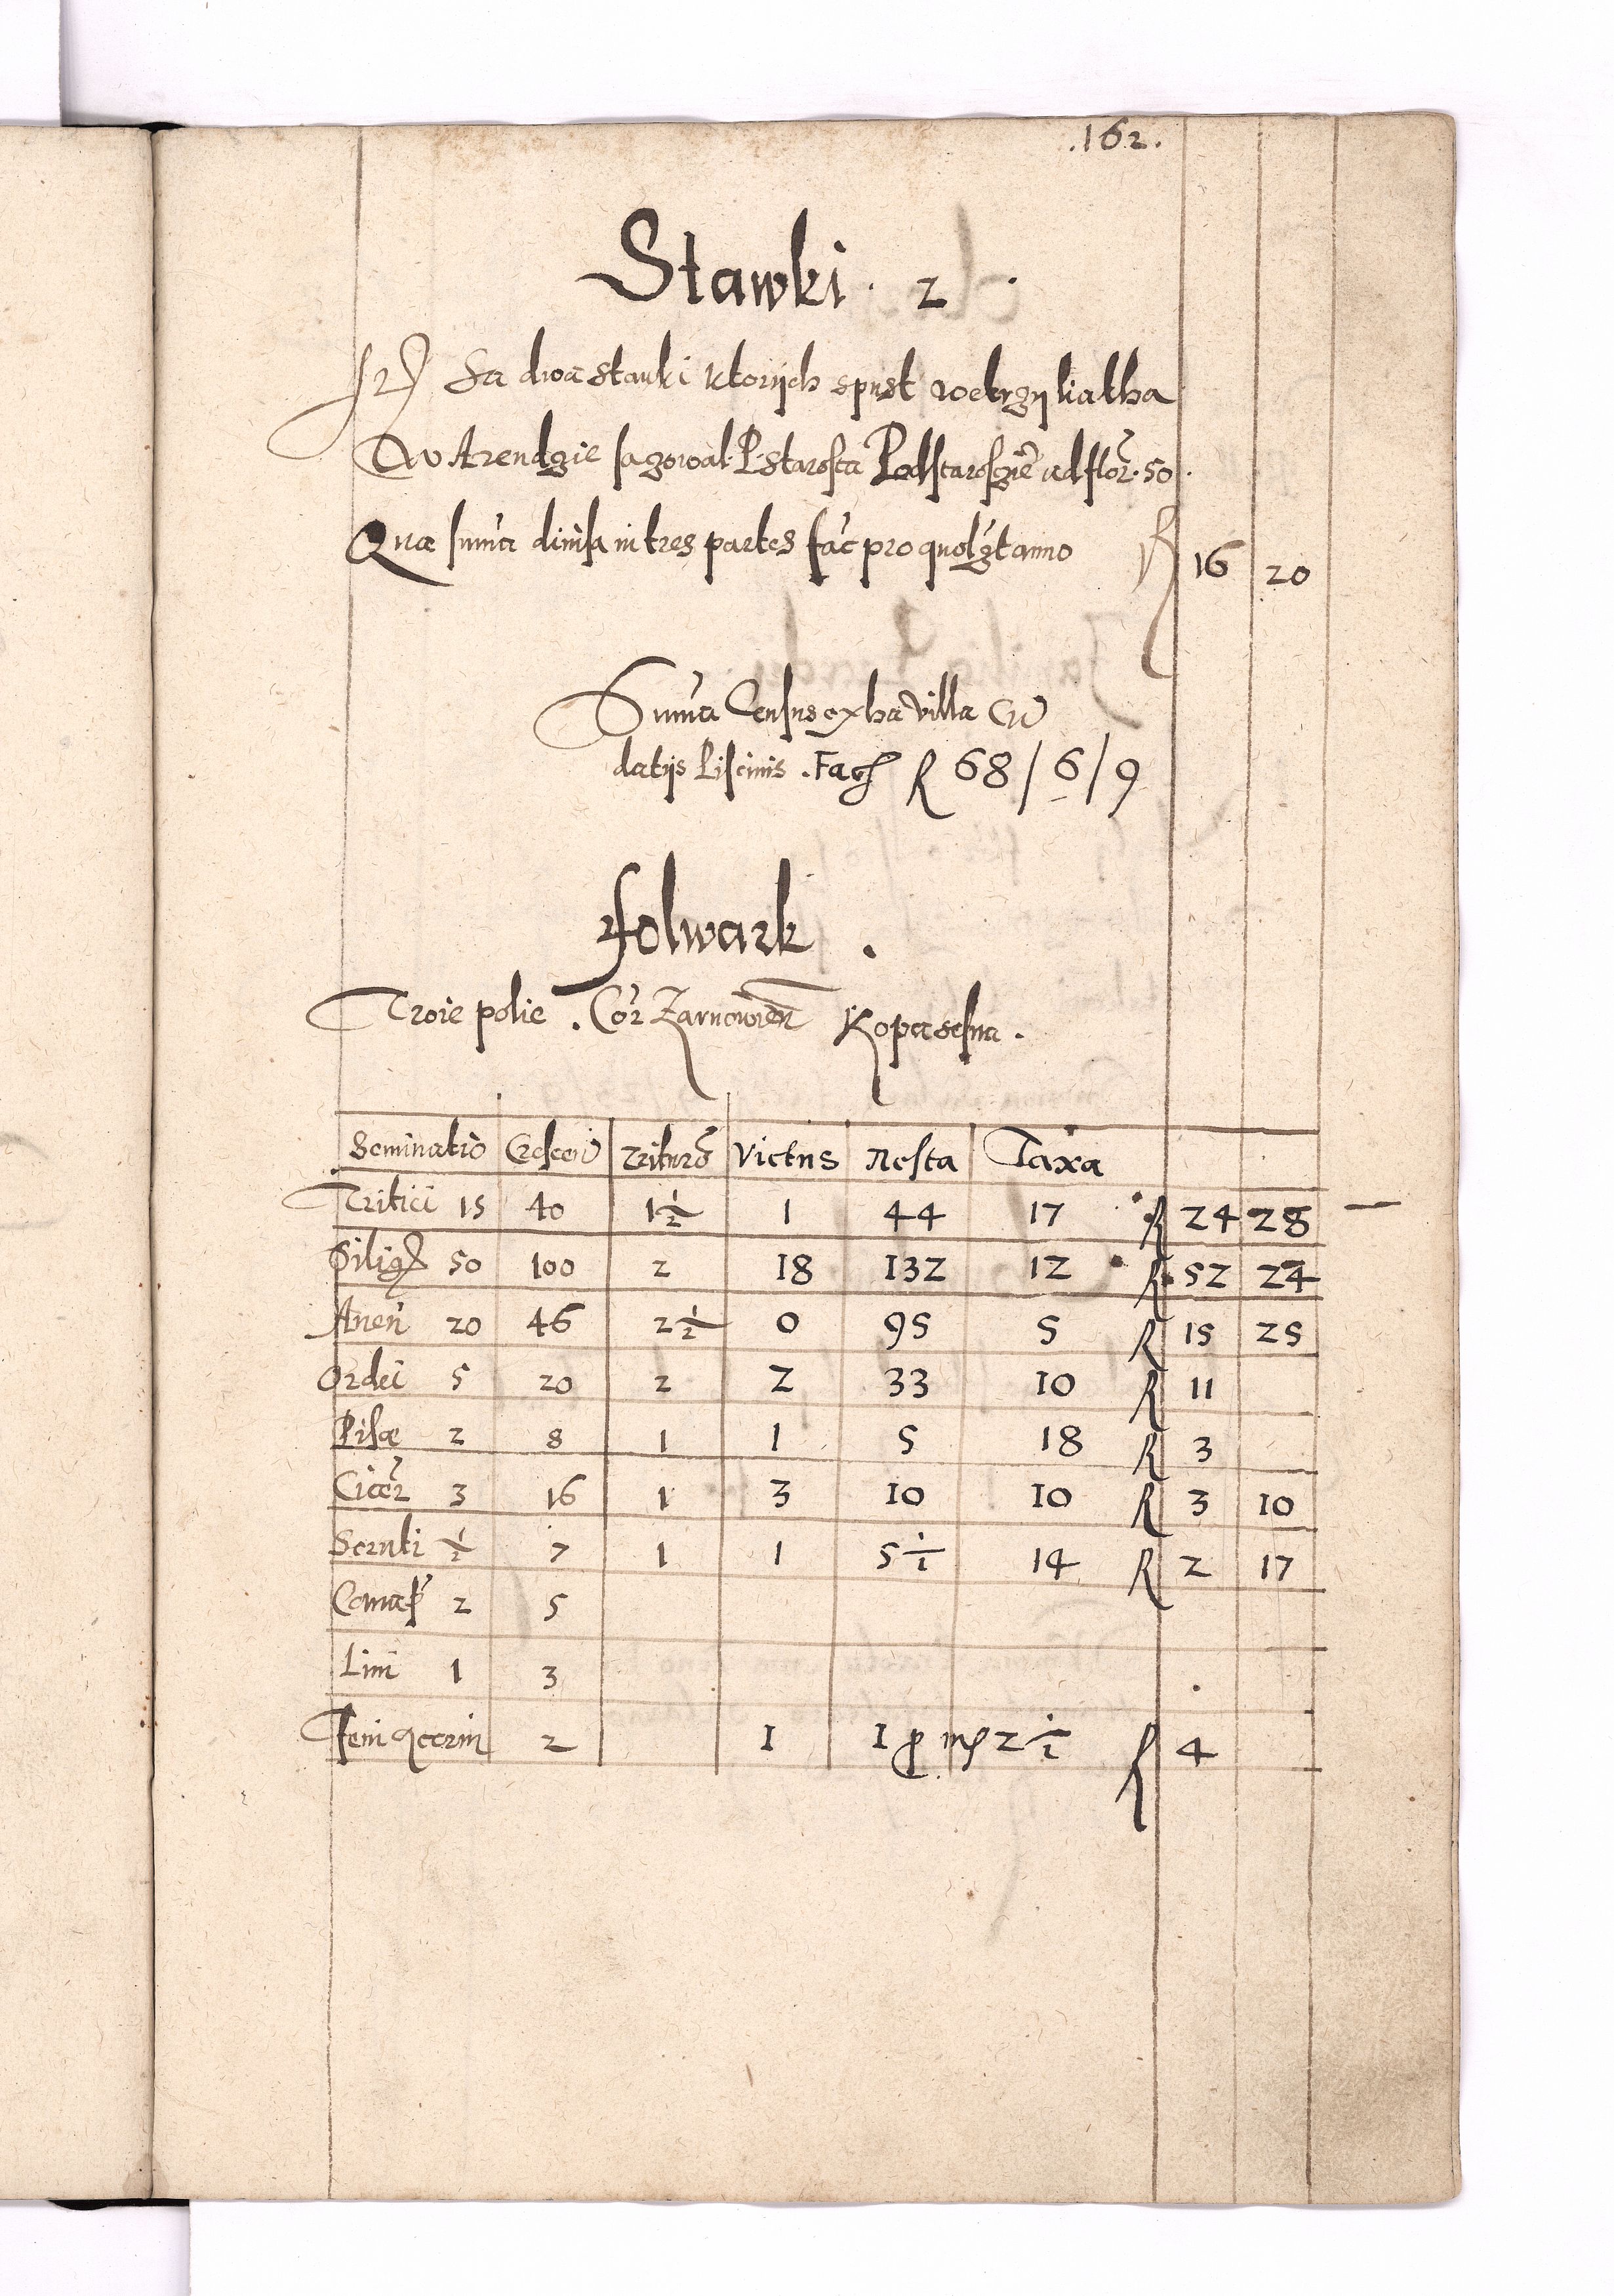 .162.
Stawki . 2 .
Sa dwa stauki ktorijch spust wetrzy liatha
W Arendzie sazowal P. Starosta Podstaroscie ad flor. 50.
Quæ suma diuisa in tres partes fac pro quolzt anno R 16 20
Suma Census ex ha villa Cu
datijs Piscinis . Facf R 68 / 6 / 9
Folwark .
Troie polie . Cor Zarnowien Kopa sesna .
Seminatio Crescen Tritura Victus Resta Taxa
Tritici 15 40 1 1/2 1 44 17 R 24 28
Silig 50 100 2 18 132 12 R 52 24
Auen 20 46 2 1/2 0 95 5 R 15 25
Ordei 5 20 2 2 33 10 R 11
Pisæ 2 8 1 1 5 18 R 3
Cicer 3 16 1 3 10 10 R 3 10
1/2 7 1 1 5 1/2 14 R 2 17
Canap 2 5
Lini 1 3
Feni 2 1 1 p 2 1/2 R 4